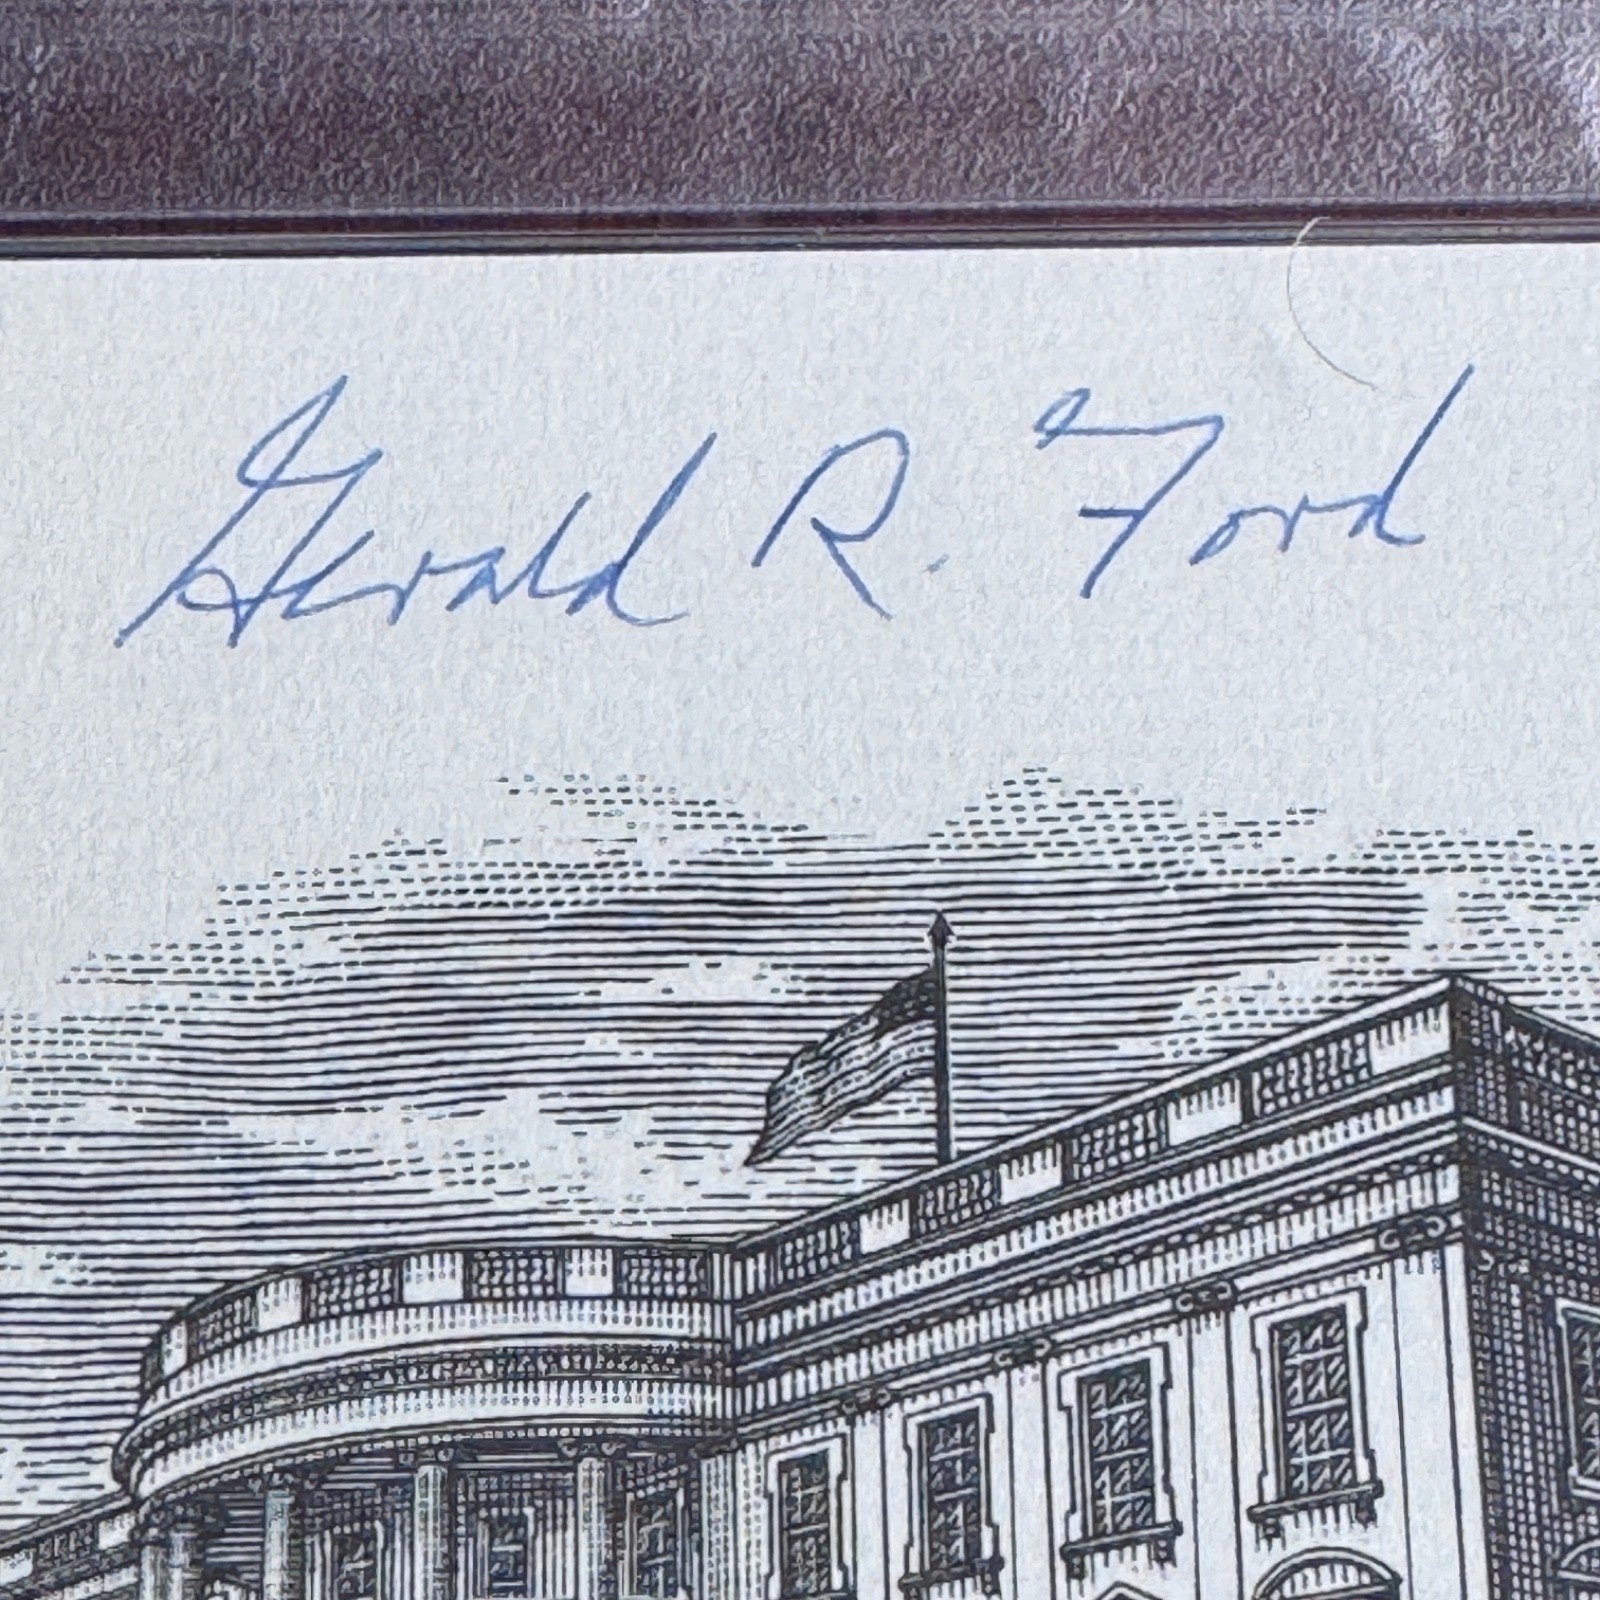 Gerald R. Ford